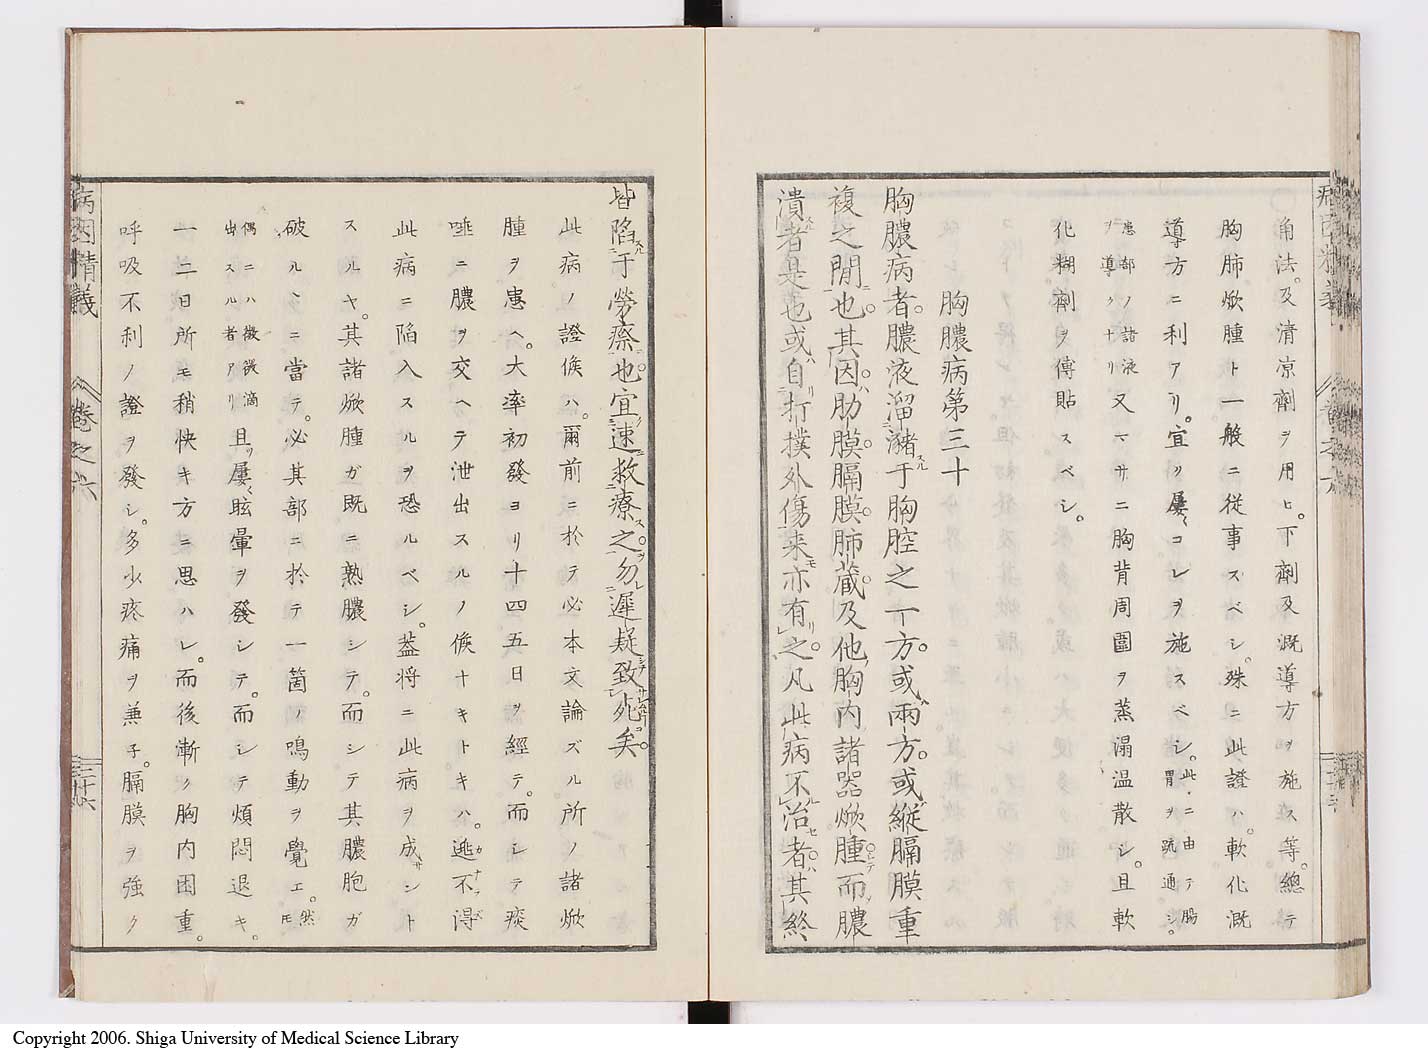 角法。及清凉劑ヲ用ヒ。下劑及漑導方ヲ施ス等。總テ
胸肺焮腫ト一般ニ従事スベシ。殊ニ此證ハ。軟化漑
導方ニ利アリ。宜ク屢〻コレヲ施スベシ。此ニ由テ腸胃ヲ疏通シ。
患部ノ諸液ヲ導クナリ又一サニ胸背周圍ヲ蒸溻温散シ。且軟
化糊劑ヲ傅貼スベシ。
胸膿病第三十
胸膿病者。膿液溜瀦スル于胸腔之一方。或ハ兩方。或ハ縦膈膜重
複之間ニ也。其因ハ肋膜。膈膜。肺蔵。及他ノ胸内諸器焮腫而膿
潰スル者是也或ハ自リ打撲外傷来モ亦有リ之。凡此病不治セ者。其終
皆陷スル于勞瘵ニ也。宜ク速ニ救療ス之ヲ。勿レ遲疑致死矣。
此病ノ證候ハ。爾前ニ於テ必本文論ズル所ノ諸焮
腫ヲ患ヘ。大率初發ヨリ十四五日ヲ經テ。而シテ痰
唾ニ膿ヲ交ヘテ泄出スルノ候ナキトキハ。遁不得
此病ニ陷入スルヲ恐ルベシ。蓋将ニ此病ヲ成サントスルヤ。其諸焮腫ガ既ニ熟膿シテ。而シテ其膿胞ガ
破ルヽニ當テ。必其部ニ於テ一箇ノ鳴動ヲ覺エ。然モ
偶ニハ微微滴出スル者アリ且ツ屢〻眩暈ヲ發シテ。而シテ煩悶退キ。
一二日所モ稍快キ方ニ思ハレ。而後漸ク胸内困重。
呼吸不利ノ證ヲ發シ。多少疼痛ヲ兼子。膈膜ヲ強ク
病因精義
巻之六
二十六
Copyright 2006. Shiga University of Medical Science Library